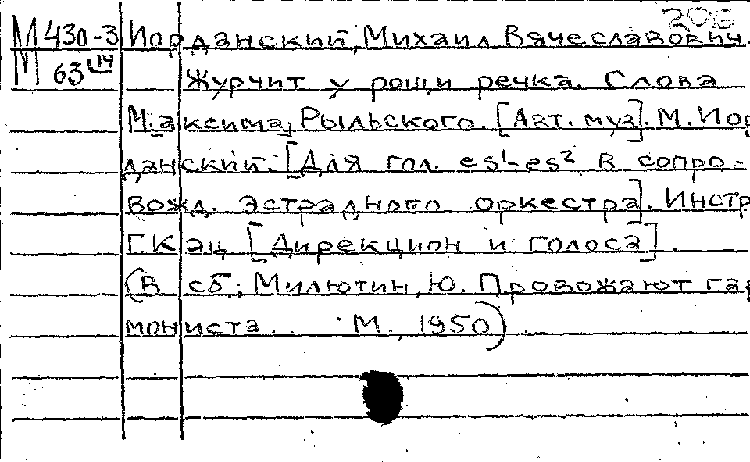 206
М 430-3 Иорданский, Михаил Вячеславович.
М 63 Журчит у рощи речка. Слова
Максима Рыльского. [Авт. муз]. М. Иор
данский. [Для гол. es¹-es² в сопро-
вожд. эстрадного оркестра]. Инстр
Г. Кац [Дирекцион и голоса].
(В сб.: Милютин, Ю. Провожают гар
мониста... М., 1950)